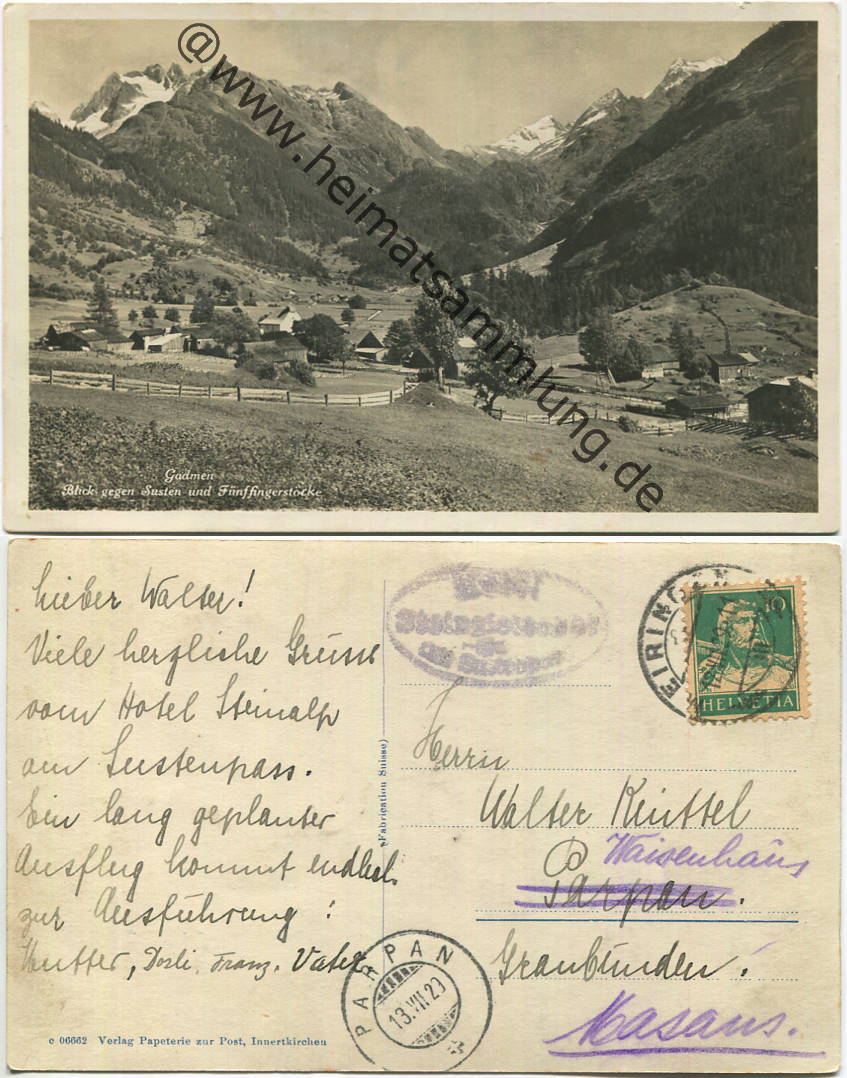 @www.heimatsammlung.de
Gadmen
Blick gegen Susten und Fünffingerstöcke
Lieber Walter!
Viele herzliche Grüsse
vom Hotel Steinalp
am Sustenpass.
Ein lang geplanter
Ausflug kommt endlich
zur Ausführung!
Mutter, Dorli, Franz, Vater
c 06662 Verlag Papeterie zur Post, Innertkirchen
(Fabrication Suisse)
Hotel
EIRINGEN
10
HELVETIA
Herrn
Walter Knüttel
Waisenhaus
Parpan.
Graubünden!
Masans.
PARPAN
13.VII.29